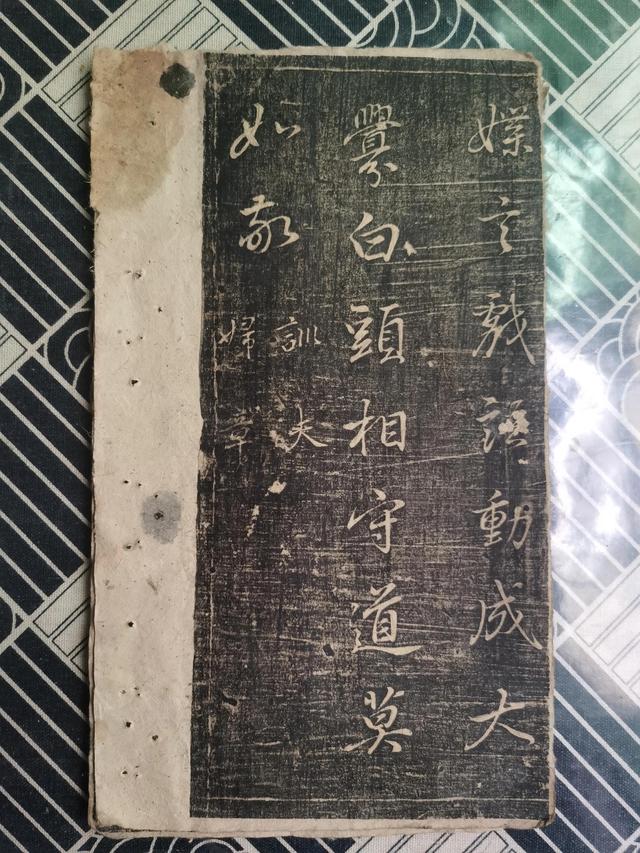 媟言戲謔動成大
釁白頭相守道莫
如敬
訓夫
婦章